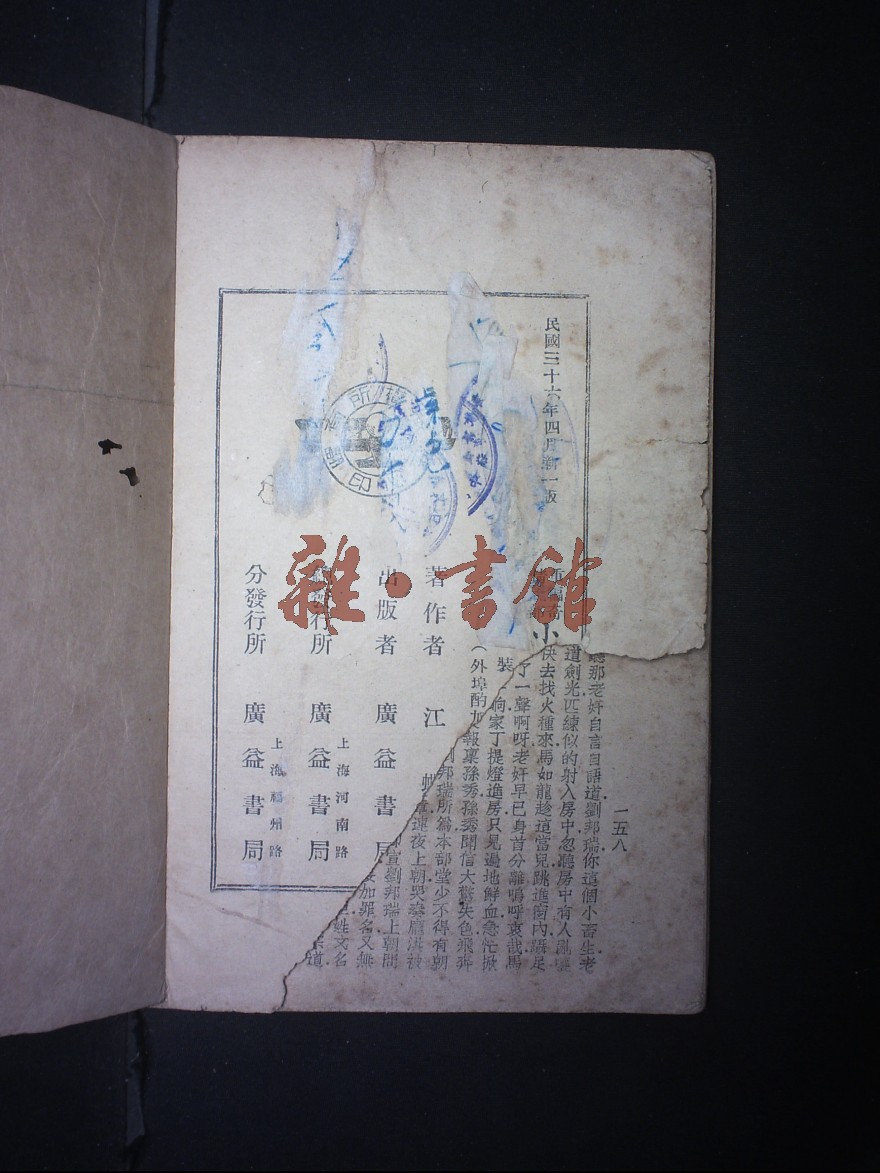 民國三十六年四月新一版
小
裝
（外埠酌加
著作者 江
出版者 廣益書局
發行所 廣益書局
上海河南路
分發行所 廣益書局
上海福州路
印
雜·書館
一五八
那老奸自言自語道劉邦瑞你這個小畜生老
道劍光匹練似的射入房中忽聽房中有人亂
快去找火種來馬如龍趁這當兒跳進窗內躡足
了一聲啊呀老奸早已身首分離嗚呼哀哉馬
倘家丁提燈進房只見遍地鮮血急忙掀
報稟孫秀孫秀聞信大驚失色飛奔
邦瑞所爲本部堂少不得有朝
連夜上朝哭奏龐洪被
劉邦瑞上朝問
加罪名又無
姓文名
道